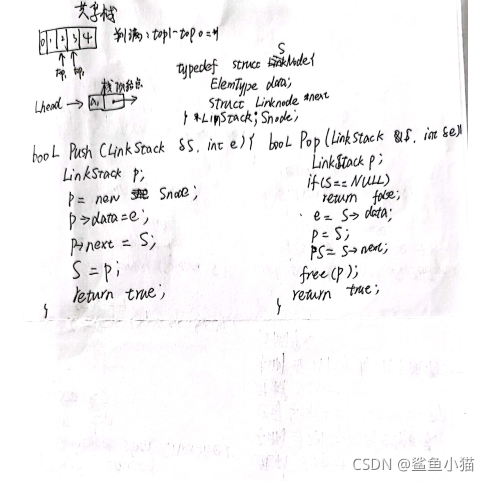 共享栈
0 1 2 3 4
判满: top1-top0==1
top0 top1
栈顶结点
Lhead → a1
typedef struct SNode{
ElemType data;
struct Linknode *next
} *LinStack; Snode;
bool Push (LinkStack &S, int e) {
LinkStack p;
p = new Snode;
p→data=e;
p→next = S;
S = p;
return true;
}
bool Pop (LinkStack &S, int &e){
LinkStack p;
if(S==NULL)
return false;
e = S→data;
p = S;
S= S→next;
free(p);
return true;
}
CSDN @鲨鱼小猫